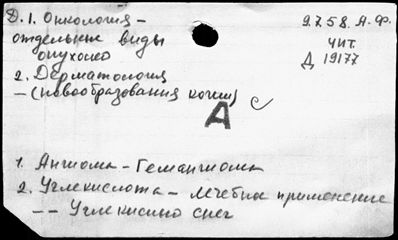 Д. 1. Онкология –
отдельные виды
опухолей
9.7.58. А.Ф.
чит.
Д 19177
2. Дерматология
– (новообразования кожи)
А с
1. Ангиома – Гемангиома
2. Углекислота – лечебное применение
– – Углекислый снег